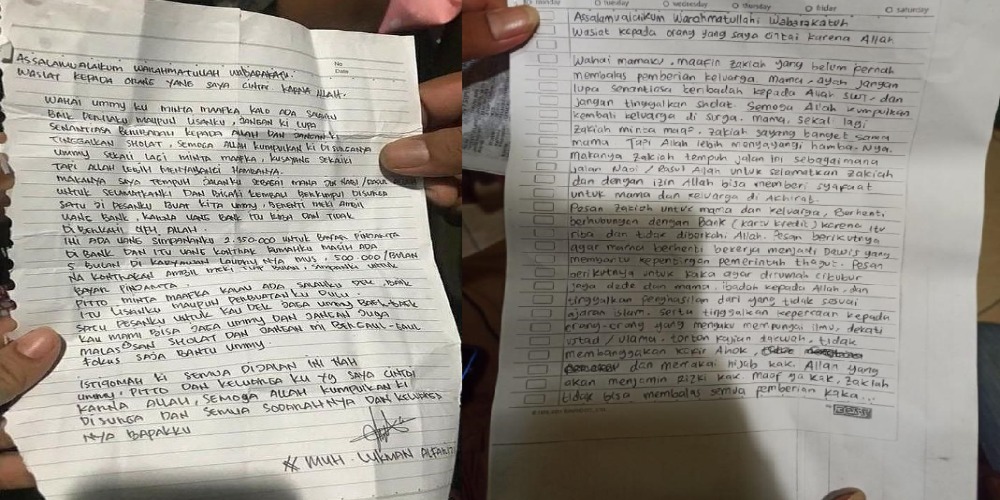 No
Date
ASSALAMUALAIKUM WARAHMATULLAH WABARAKATU.
WASIAT KEPADA ORANG YANG SAYA CINTAI KARNA ALLAH.
WAHAI UMMY KU MINTA MAAFKA KALO ADA SALAHKU
BAIK DENGAN LISANKU, JANGAN KI LUPA
SENANTIASA BERIBADAH KEPADA ALLAH DAN JANGAN KI
TINGGALKAN SHOLAT, SEMOGA ALLAH KUMPULKAN KI DI SURGANYA
UMMY SEKALI LAGI MINTA MAAFKA, KUSAYANG SEKALIKI
TAPI ALLAH LEBIH MENYAYANGI HAMBANYA.
MAKANYA SAYA TEMPUH JALANKU SEBAGAI MANA JLN NABI / RASUL
UNTUK SELAMATKANKI DAN BISAKI KEMBALI BERKUMPUL DI SURGA
SATU JI PESANKU BUAT KITA UMMY, BERENTI MEKI AMBIL
UANG BANK, KARNA UANG BANK ITU RIBA DAN TIDAK
DI BERKATI OLEH ALLAH.
INI ADA UANG SIMPANANKU 2.350.000 UNTUK BAYAR PINJAMTA
DI BANK DAN ITU UANG KONTRAK RUMAHKU MASIH ADA
BULAN DI 500.000/BULAN
NA KONTRAKAN AMBIL MEKI TIAP BULAN, SIMPANKI UNTUK
BAYAR PINJAMTA.
PITTO, MINTA MAAFKA KALAU ADA SALAHKU DEK, BAIK
ITU LISANKU MAUPUN PERBUATANKU DULU.
SATU PESANKU UNTUK KAU DEK JAGA UMMY BAEK-BAEK
KAU MAMI BISA JAGA UMMY DAN JANGAN JUGA
MALAS²SAN SHOLAT DAN JANGAN MI BERGAUL-GAUL
FOKUS SAJA BANTU UMMY.
ISTIQOMAH KI SEMUA DIJALAN INI NAH
UMMY, PITTO DAN KELUARGA KU YG SAYA CINTAI
KARNA ALLAH, SEMOGA ALLAH KUMPULKAN KI
DI SURGA DAN SEMUA SODARAHNYA DAN KELUARGA
NYA BAPAKKU
MUH. LUKMAN ALFARIZ
monday tuesday wednesday thursday friday saturday
Assalamualaikum Warahmatullahi Wabarakatuh
Wasiat kepada orang yang saya cintai karena Allah
Wahai mamaku, maafin zakiah yang belum pernah
membalas pemberian keluarga. mama, ayah jangan
lupa senantiasa beribadah kepada Allah SWT, dan
jangan tinggalkan sholat. Semoga Allah kumpulkan
kembali keluarga di surga. mama, sekali lagi
zakiah minta maaf. zakiah sayang banget sama
mama Tapi Allah lebih menyayangi hamba-Nya.
makanya zakiah tempuh jalan ini sebagaimana
jalan Nabi / Rasul Allah untuk selamatkan zakiah
dan dengan izin Allah bisa memberi syafaat
untuk mama dan keluarga di Akhirat.
Pesan zakiah untuk mama dan keluarga, Berhenti
berhubungan dengan Bank (kartu kredit) karena itu
riba dan tidak diberkahi Allah. Pesan berikutnya
agar mama berhenti bekerja menjadi Dawis yang
membantu kepentingan pemerintah thogut. Pesan
berikutnya untuk kaka agar dirumah cibubur
jaga dede dan mama, ibadah kepada Allah, dan
tinggalkan penghasilan dari yang tidak sesuai
ajaran islam. serta tinggalkan kepercaan kepada
orang-orang yang mengaku mempunyai ilmu, dekati
ustad / ulama, tonton kajian dakwah, tidak
membanggakan kafir Ahok,
dan memakai hijab kak. Allah yang
akan menjamin rizki kak. maaf ya kak, zakiah
tidak bisa membalas semua pemberian kaka...